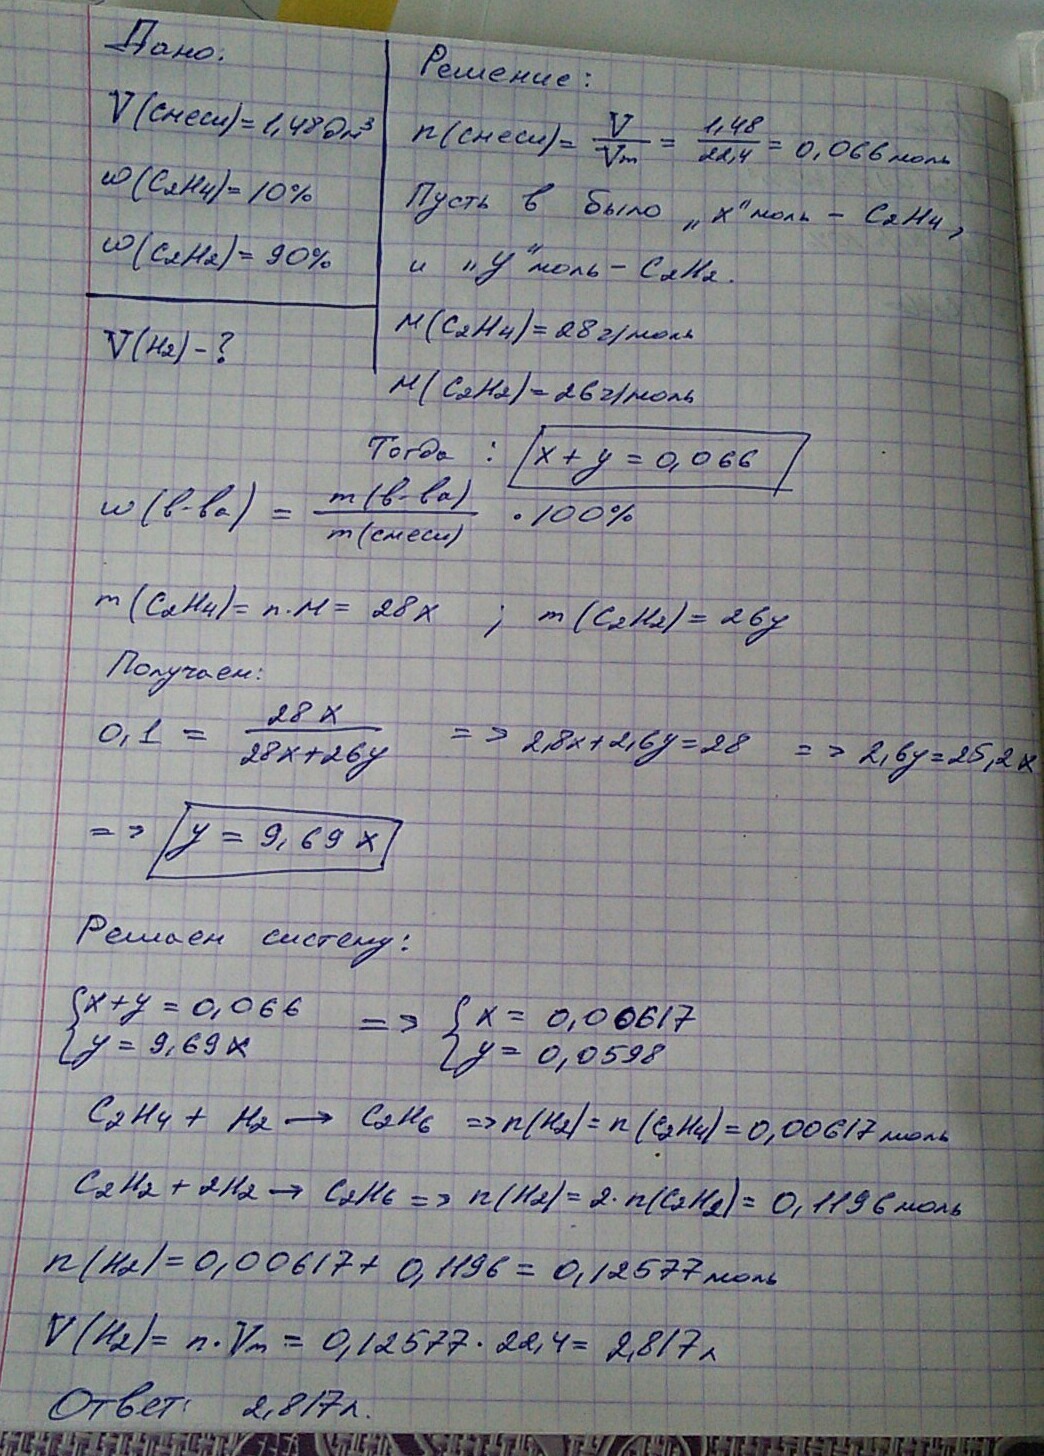 Дано:
V(смеси)=1,48дм³
ω(C₂H₄)=10%
ω(C₂H₂)=90%
V(H₂)-?
Решение:
n(смеси)= V/Vm = 1,48/22,4 = 0,066 моль
Пусть в было „x" моль - C₂H₄,
и „y" моль - C₂H₂.
M(C₂H₄)=28 г/моль
M(C₂H₂)=26 г/моль
Тогда : x+y=0,066
ω(в-ва) = m(в-ва)/m(смеси) · 100%
m(C₂H₄)= n·M= 28x ; m(C₂H₂)= 26y
Получаем:
0,1 = 28x/28x+26y => 2,8x+2,6y=28 => 2,6y=25,2x
=> y = 9,69x
Решаем систему:
{x+y=0,066 => {x= 0,00617
{y=9,69x {y= 0,0598
C₂H₄ + H₂ → C₂H₆ => n(H₂)= n(C₂H₄)=0,00617 моль
C₂H₂ + 2H₂ → C₂H₆ => n(H₂)= 2·n(C₂H₂)= 0,1196 моль
n(H₂)=0,00617+ 0,1196 = 0,12577 моль
V(H₂)= n·Vm = 0,12577·22,4= 2,817 л
Ответ: 2,817 л.